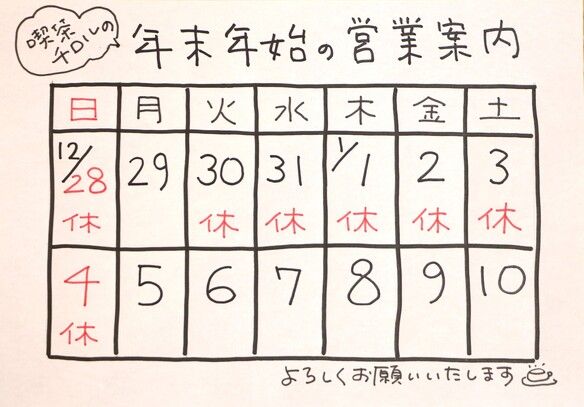 喫茶
チロルの
年末年始の営業案内
日 月 火 水 木 金 土
12/28 29 30 31 1/1 2 3
休 休 休 休 休 休
4 5 6 7 8 9 10
休
よろしくお願いいたします